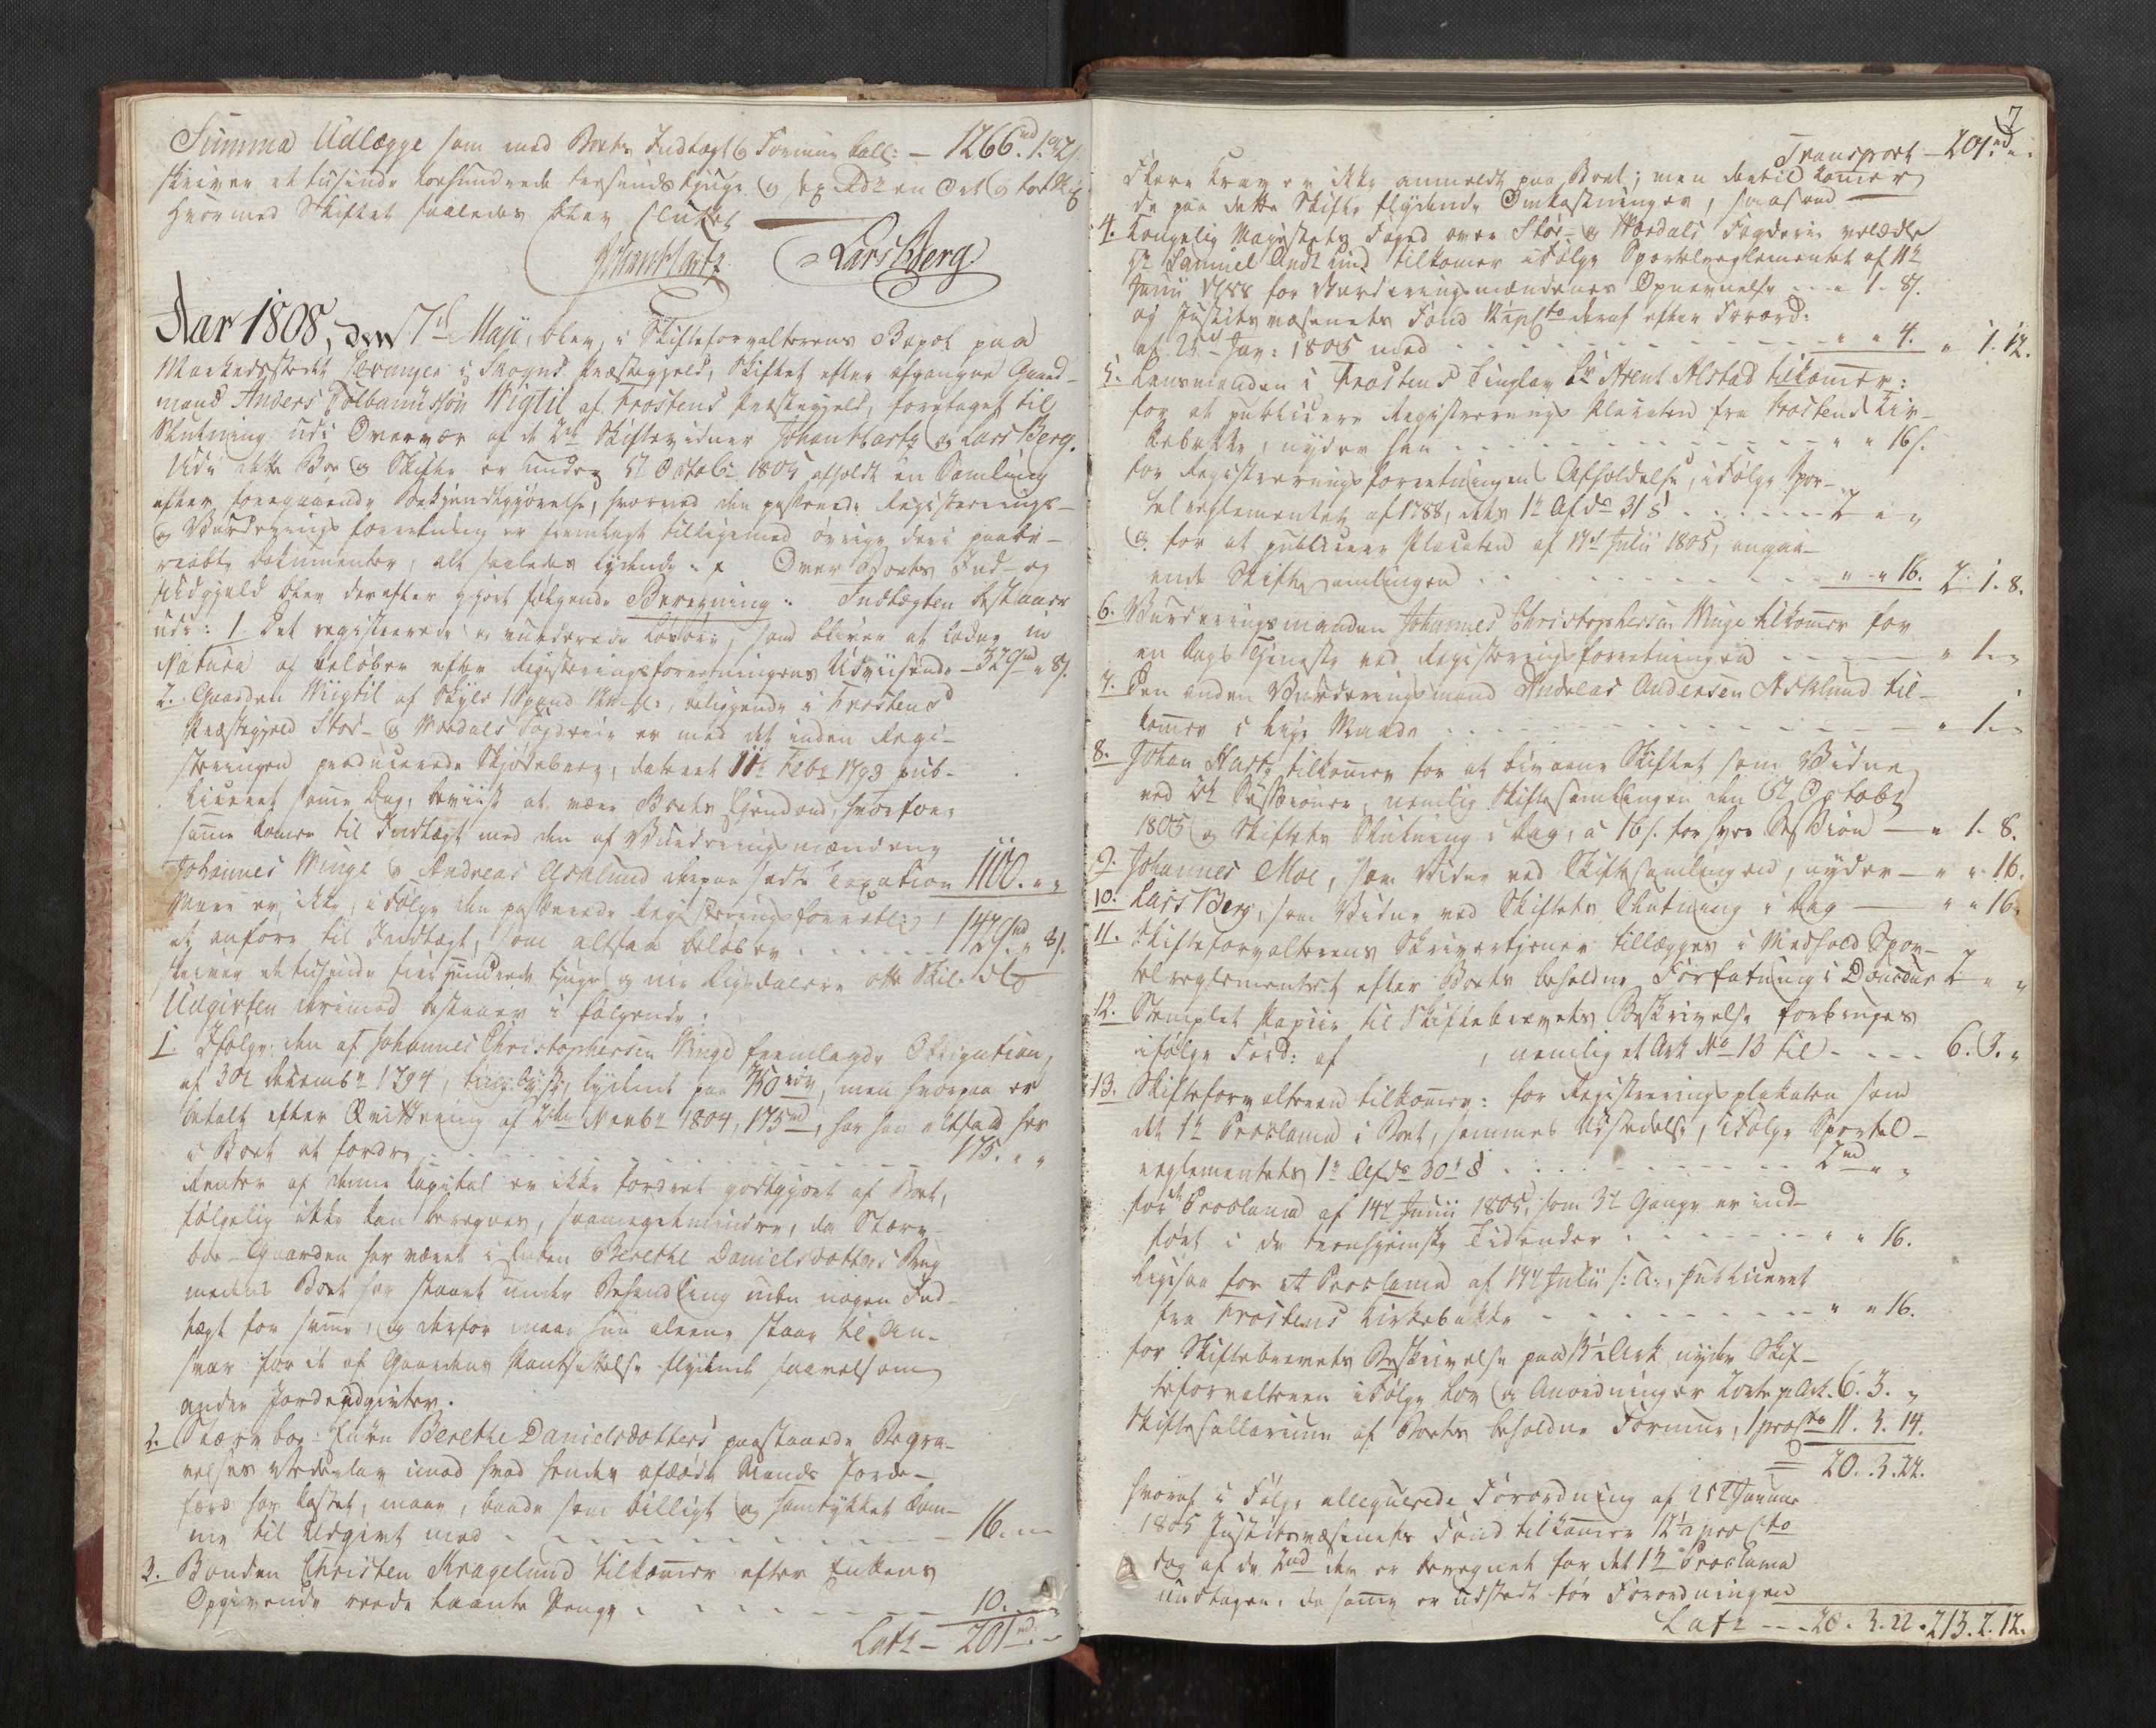 Summa Udlægge som med Boets Indtægt og Formue ball: — 1266 rd. 1. 21.
skriver et tusinde toehundrede tresindstyve og sex Rdr en Ort og
Hvormed Skiftet saaledes blev sluttet
Johan Hartz Lars Berg
Aar 1808, den 7de Maji, blev, i Skifteforvalterens Bopæl paa
Markedsstedet Levanger i Skogns Præstegjeld, Skiftet efter afgangne Gaard-
mand Anders Tolbaniussøn Wigtil af Frostens Præstegjeld, foretaget til
Slutning udi Overvær af de 2de Skiftevidner Johan Hartz og Lars Berg.
Udi dette Boe og Skifte er under 5t Octobr 1805 afholdt en Samling
efter foregaaende Bekjendtgjørelse, hvorved den passerede Registrerings-
og Vurderings forretning er fremlagt tilligemed øvrige deri paabe-
raabte Dokumenter, alt saaledes lydende: Over Boets Ind- og
Udgjeld blev derefter gjort følgende Beregning: Indtægten bestaaer
udi: 1 Det registrerede og vurderede Løsøre, som bliver at lodne in
Natura og beløber efter Registreringsforretningens Udviisende — 329 rd " 8 s.
2. Gaarden Wiigtil af Skyld 1 Spand, beliggende i Frostens
Præstegjeld Stør- og Værdals Fogderie er med det inden Regi-
streringen producerede Skjødebrev, dateret 11t Febr 1793 pub-
liceret samme Dag, beviist at være Boets Ejendom, hvorfor
samme kommer til Indtægt med den af Vurderingsmændene
Johannes Winge og Andreas Asklund derpaa satte Taxation 1100. " "
Meere er ikke, ifølge den passerede Registreringsforretn:
at anføre til Indtægt, som altsaa beløber . . . . . 1429 rd " 8 s.
skriver et tusinde fiirehundrede tyve og nie Rigsdalere otte Skil:
Udgivten derimod bestaaer i følgende:
1 Ifølge den af Johannes Christophersen Winge fremlagde Obligation,
af 30t Decembr 1794, lydende paa 350 rdr, men hvorpaa er
betalt efter Qvittering af Novbr 1804, 175 rd, har han altsaa her
i Boet at fordre . . . . . 175. " "
Renter af denne Kapital er ikke fordret godtgjort af Boet,
følgelig ikke kan beregnes, saameget mindre, da Stærv-
boe-Gaarden har været i Enken Berethe Danielsdatters Brug
medens Boet har staaet under Behandling uden nogen Ind-
tægt for samme, og derfor maae hun alene staae til An-
svar for de af Gaardens Pantsættelse flydende saavelsom
andre Jordeudgivter.
2. Stærvboe-Enken Berethe Danielsdotters paastaaede Begra-
velses Vederlag imod hvad hendes afdøde Mands Jorde-
færd har kostet, maae, baade som billigt og samtykket kom-
me til Udgivt med . . . . . 16. " "
3. Bonden Christen Kragelund tilkommer efter Enkens
Opgivende reede laante Penge . . . . . 10. " "
Latr — 201 rd. " "
7
Transport — 201 rd. " "
Flere Krav er ikke anmeldt paa Boet; men dertil kommer
de paa dette Skifte flydende Omkostninger, saasom —
4. Kongelig Majestets Foged over Stør- og Værdals Fogderie velædle
Hr Samuel tilkommer ifølge Sportelreglementet af 11te
Junii 1788 for Vurderingsmændenes Opnævnelse . . . " 1. 8 s.
og Justitsvæsenets Fond deraf efter Forord:
af 25de Jan: 1805 med . . . . . " " 4. " 1. 12.
5. Lensmanden i Frostens Tinglav Sr Arent Alstad tilkommer:
for at publicere Registrerings Placaten fra Frostens Kir-
kebakke, nyder han . . . . . " " 16 s.
for Registreringsforretningens Afholdelse, ifølge Spor-
telreglementet af 1788, dets 1te Afd 31 § . . . . . 2 " "
og for at publicere Placaten af 17de Julii 1805, angaa-
ende Skiftesamlingen . . . . . " " 16. 2. 1. 8.
6. Vurderingsmanden Johannes Christophersen Winge tilkommer for
en Dags Tjeneste ved Registreringsforretningen . . . . . " 1. "
7. Den anden Vurderingsmand Andreas Andersen Asklund til-
kommer i lige Maade . . . . . " 1. "
8. Johan Hartz tilkommer for at bivaane Skiftet som Vidne
ved 2de Sessioner, nemlig Skiftesamlingen den 5t Octobr
1805 og Skiftets Slutning i Dag, a 16 s. for hver Session — " 1. 8.
9. Johannes Moe, som Vidne ved Skiftesamlingen, nyder — " " 16.
10. Lars Berg, som Vidne ved Skiftets Slutning i Dag — " " 16.
11. Skifteforvalterens Skrivertjener tillægges i Medhold Spor-
telreglementet efter Boets beholdne Forfatning i Douceur 2 " "
12. Stemplet Papiir til Skiftebrevets Beskrivelse forbruges
ifølge Ford: af , nemlig et Ark No 13 til . . . . 6. 3. "
13. Skifteforvalteren tilkommer: for Registreringsplakaten som
det 1te Proclama i Boet, sammes Udstædelse, ifølge Sportel-
reglementets 1te Afd 30te § . . . . . 2 rd " "
for et Proclama af 14de Junii 1805, som 3de Gange er ind-
ført i de trondhjemske Tidender . . . . . " " 16.
ligesaa for et Proclama af 17de Julii s: A:, publiceret
fra Frostens Kirkebakke . . . . . " " 16.
for Skiftebrevets Beskrivelse paa Ark nyder Skif-
teforvalteren ifølge Lov og Anordninger 2 Ort pr Ark. 6. 3. "
Skiftesallarium af Boets beholdne Formue, 1 pro Cto 11. 3. 14.
20. 3. 22.
hvoraf i Følge allegerede Forordning af 25de Januar
1805 Justitsvæsenets Fond tilkommer 12½ pro Cto
dog af de 2 rd der er beregnet for det 1te Proclama
undtagen, da samme er udstædt før Forordningen
Latr - - - 20. 3. 22. 213. 2. 12.